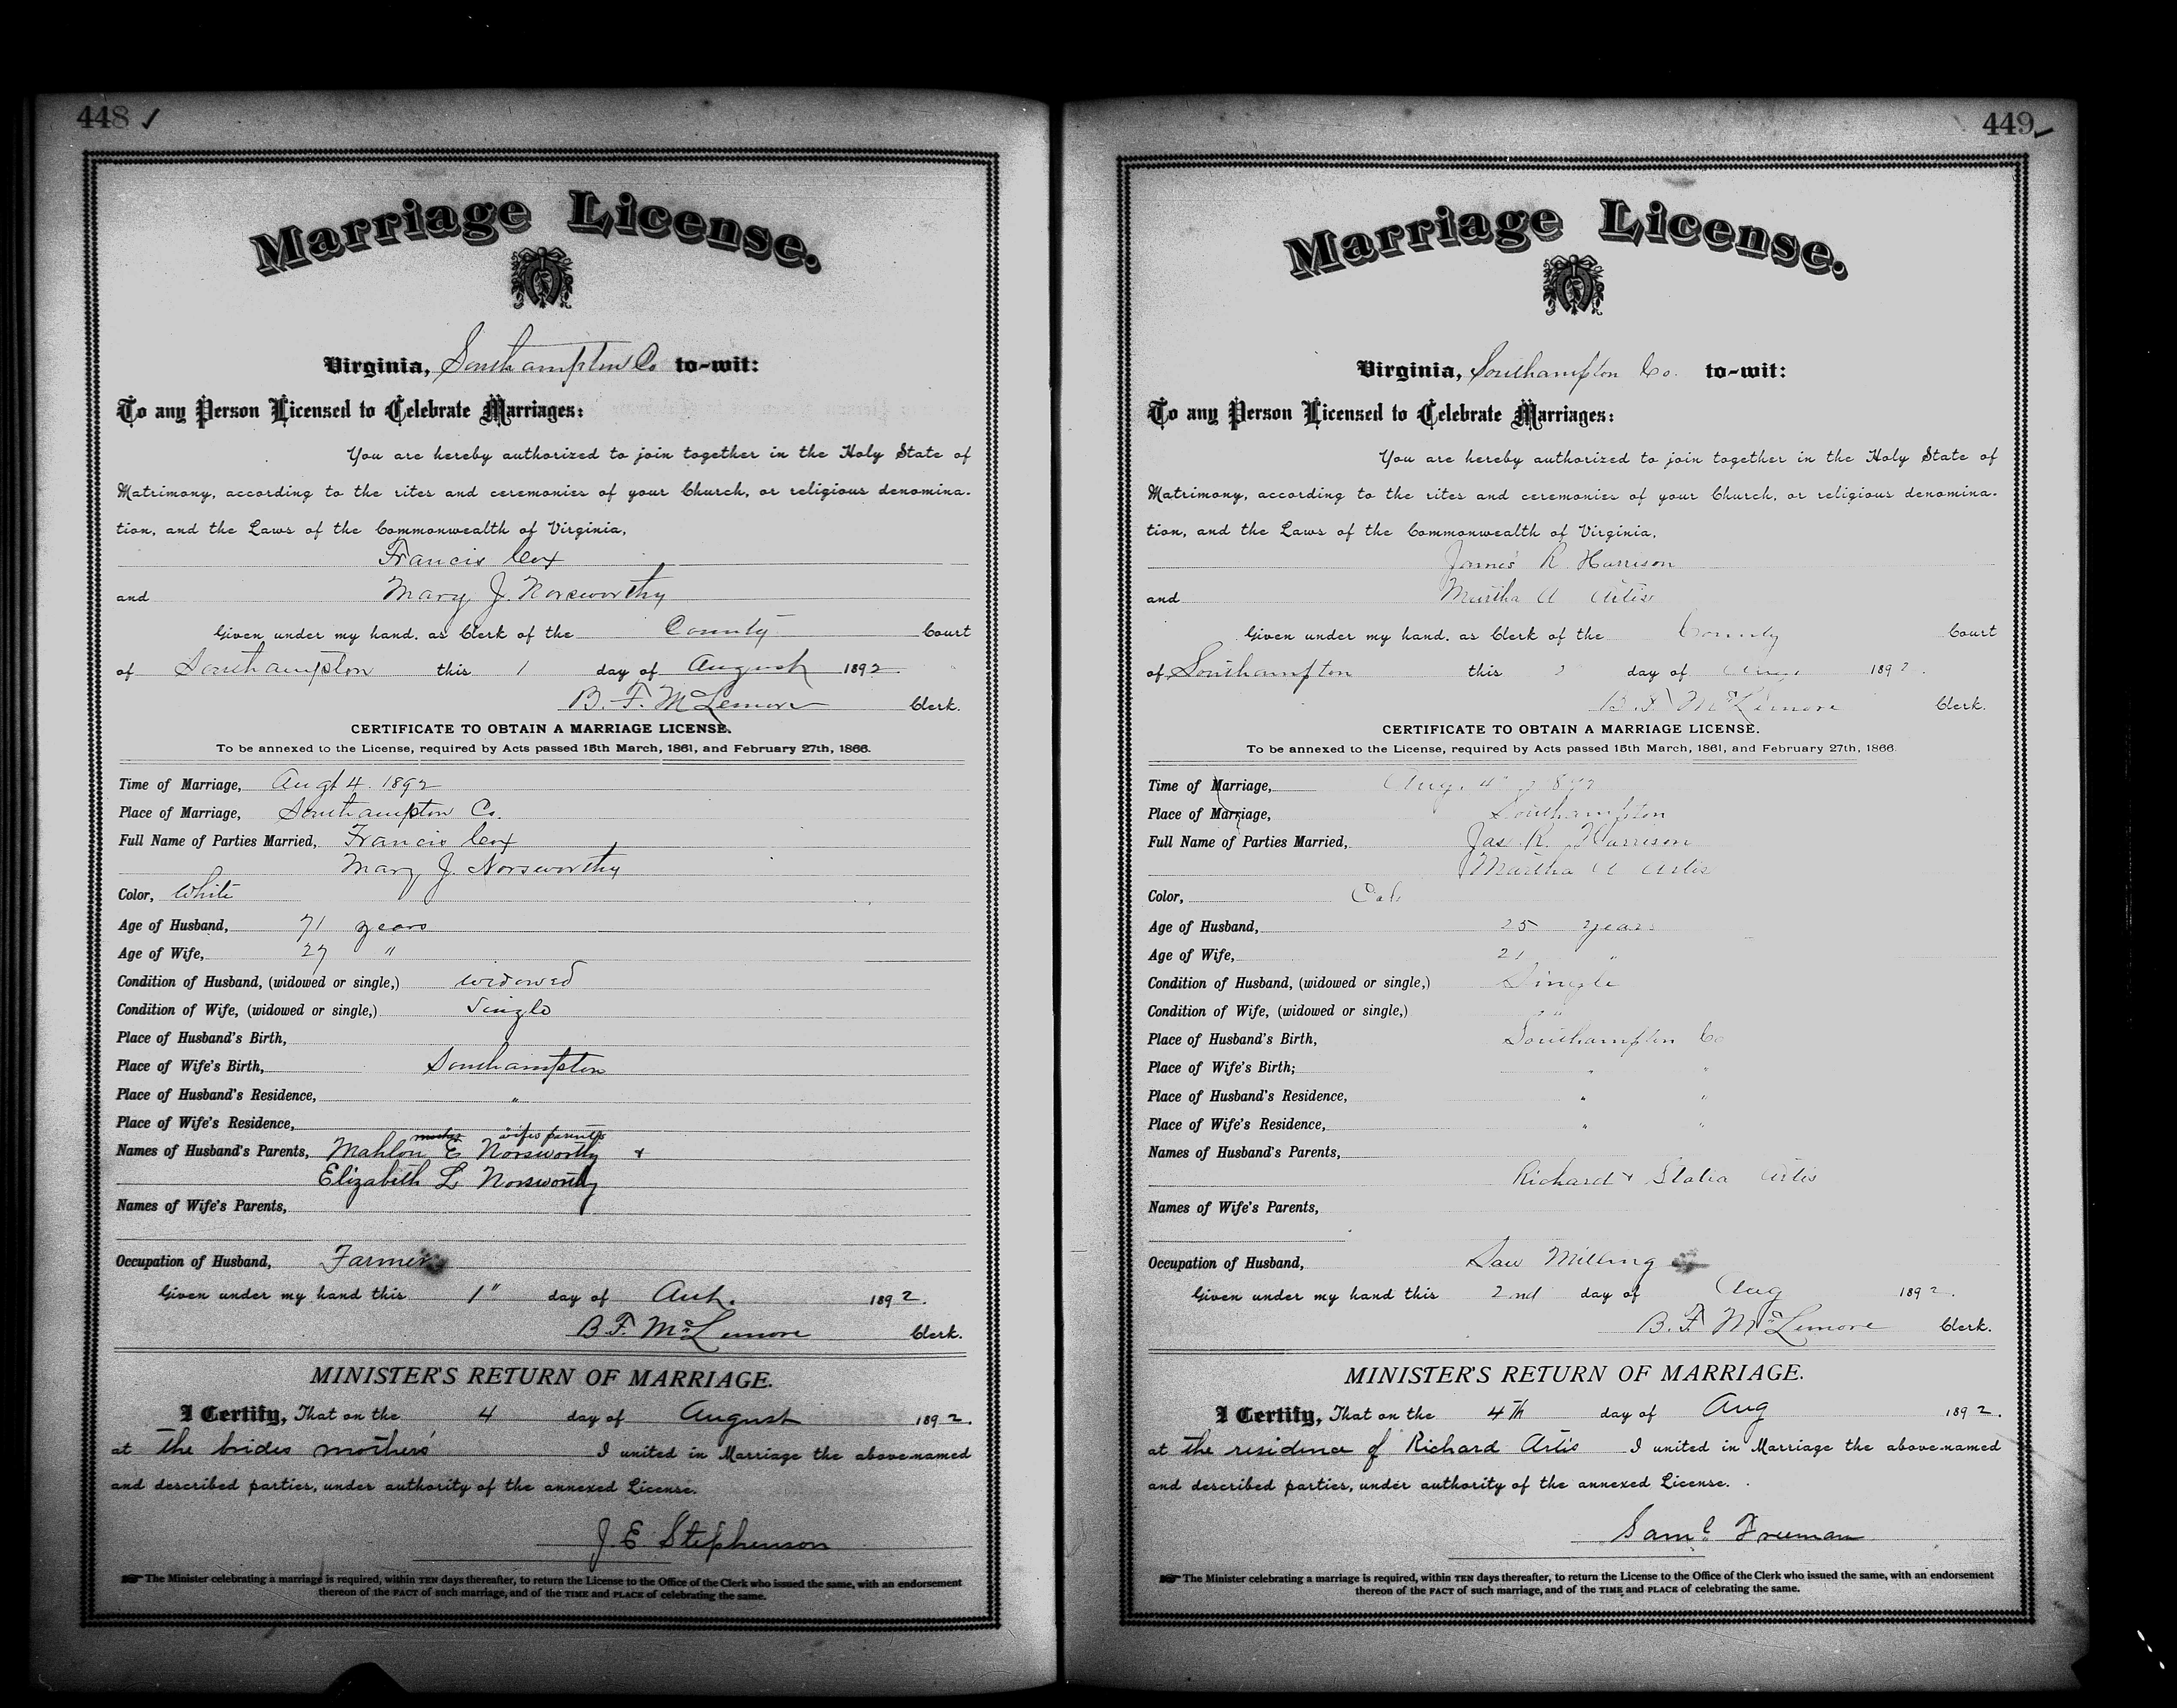 448 ✓
Marriage License.
Virginia, Southampton Co to-wit:
To any Person Licensed to Celebrate Marriages:
You are hereby authorized to join together in the Holy State of
Matrimony, according to the rites and ceremonies of your Church, or religious denomina-
tion, and the Laws of the Commonwealth of Virginia,
Francis Cox
and Mary J. Norsworthy
Given under my hand, as Clerk of the County Court
of Southampton this 1 day of August 1892.
B. F. McLemore Clerk.
CERTIFICATE TO OBTAIN A MARRIAGE LICENSE.
To be annexed to the License, required by Acts passed 15th March, 1861, and February 27th, 1866.
Time of Marriage, Augt 4. 1892
Place of Marriage, Southampton Co.
Full Name of Parties Married, Francis Cox
Mary J. Norsworthy
Color, White
Age of Husband, 71 years
Age of Wife, 27 "
Condition of Husband, (widowed or single,) widowed
Condition of Wife, (widowed or single,) Single
Place of Husband's Birth,
Place of Wife's Birth, Southampton
Place of Husband's Residence, "
Place of Wife's Residence,
wifes parents
Names of Husband's Parents, Mahlon E Norsworthy +
Elizabeth L Norsworthy
Names of Wife's Parents,
Occupation of Husband, Farmer
Given under my hand this 1" day of 1892.
B. F. McLemore Clerk.
MINISTER'S RETURN OF MARRIAGE.
I Certify, That on the 4 day of August 1892.
at the brides mothers' I united in Marriage the above-named
and described parties, under authority of the annexed License.
J. E Stephenson
☞ The Minister celebrating a marriage is required, within TEN days thereafter, to return the License to the Office of the Clerk who issued the same, with an endorsement
thereon of the FACT of such marriage, and of the TIME and PLACE of celebrating the same.
449
Marriage License.
Virginia, Southampton Co. to-wit:
To any Person Licensed to Celebrate Marriages:
You are hereby authorized to join together in the Holy State of
Matrimony, according to the rites and ceremonies of your Church, or religious denomina-
tion, and the Laws of the Commonwealth of Virginia,
James R. Harrison
and Martha A Artis
Given under my hand, as Clerk of the County Court
of Southampton this day of Aug. 189
B. F. McLemore Clerk.
CERTIFICATE TO OBTAIN A MARRIAGE LICENSE.
To be annexed to the License, required by Acts passed 15th March, 1861, and February 27th, 1866.
Time of Marriage, Aug. 4" 1892
Place of Marriage, Southampton
Full Name of Parties Married, Jas. R. Harrison
Martha A Artis
Color, Col.
Age of Husband, 25 years
Age of Wife, 21 "
Condition of Husband, (widowed or single,) Single
Condition of Wife, (widowed or single,) "
Place of Husband's Birth, Southampton Co
Place of Wife's Birth; " "
Place of Husband's Residence, " "
Place of Wife's Residence, " "
Names of Husband's Parents,
Richard + Artis
Names of Wife's Parents,
Occupation of Husband, Saw Milling
Given under my hand this 2nd day of Aug 1892.
B. F. McLemore Clerk.
MINISTER'S RETURN OF MARRIAGE.
I Certify, That on the 4th day of Aug 1892.
at the residence of Richard Artis I united in Marriage the above-named
and described parties, under authority of the annexed License.
Saml Freeman
☞ The Minister celebrating a marriage is required, within TEN days thereafter, to return the License to the Office of the Clerk who issued the same, with an endorsement
thereon of the FACT of such marriage, and of the TIME and PLACE of celebrating the same.